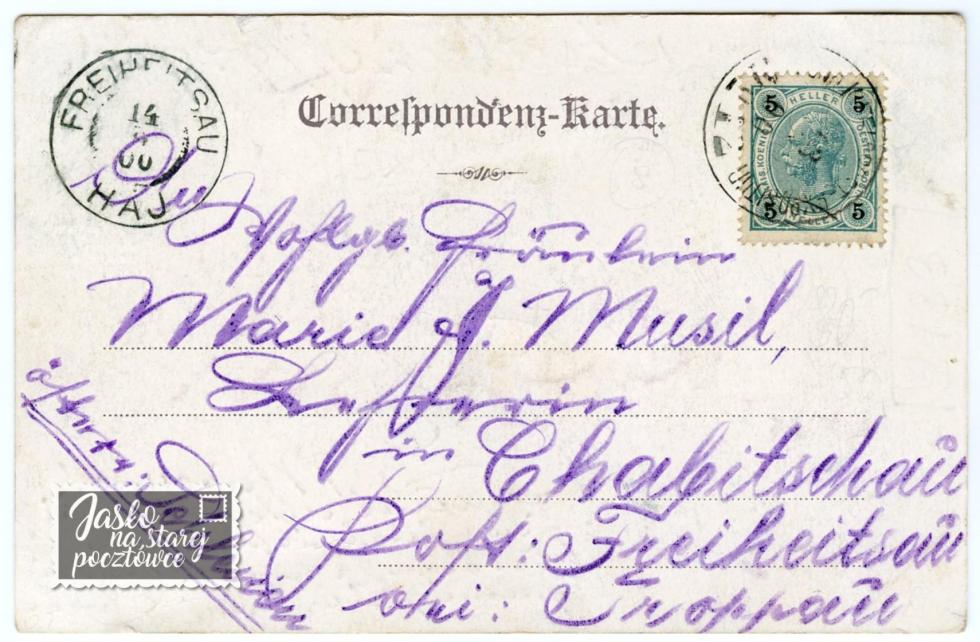 FREIHEITSAU
14
00
HAJ
Correspondenz-Karte.
5 HELLER 5
5 5
An
Wohlgb. Fräulein
Marie J. Musil,
Lehrerin
in Chabitschau
Post: Freiheitsau
bei: Troppau
österr. Schlesien
Jasło
na starej
pocztówce